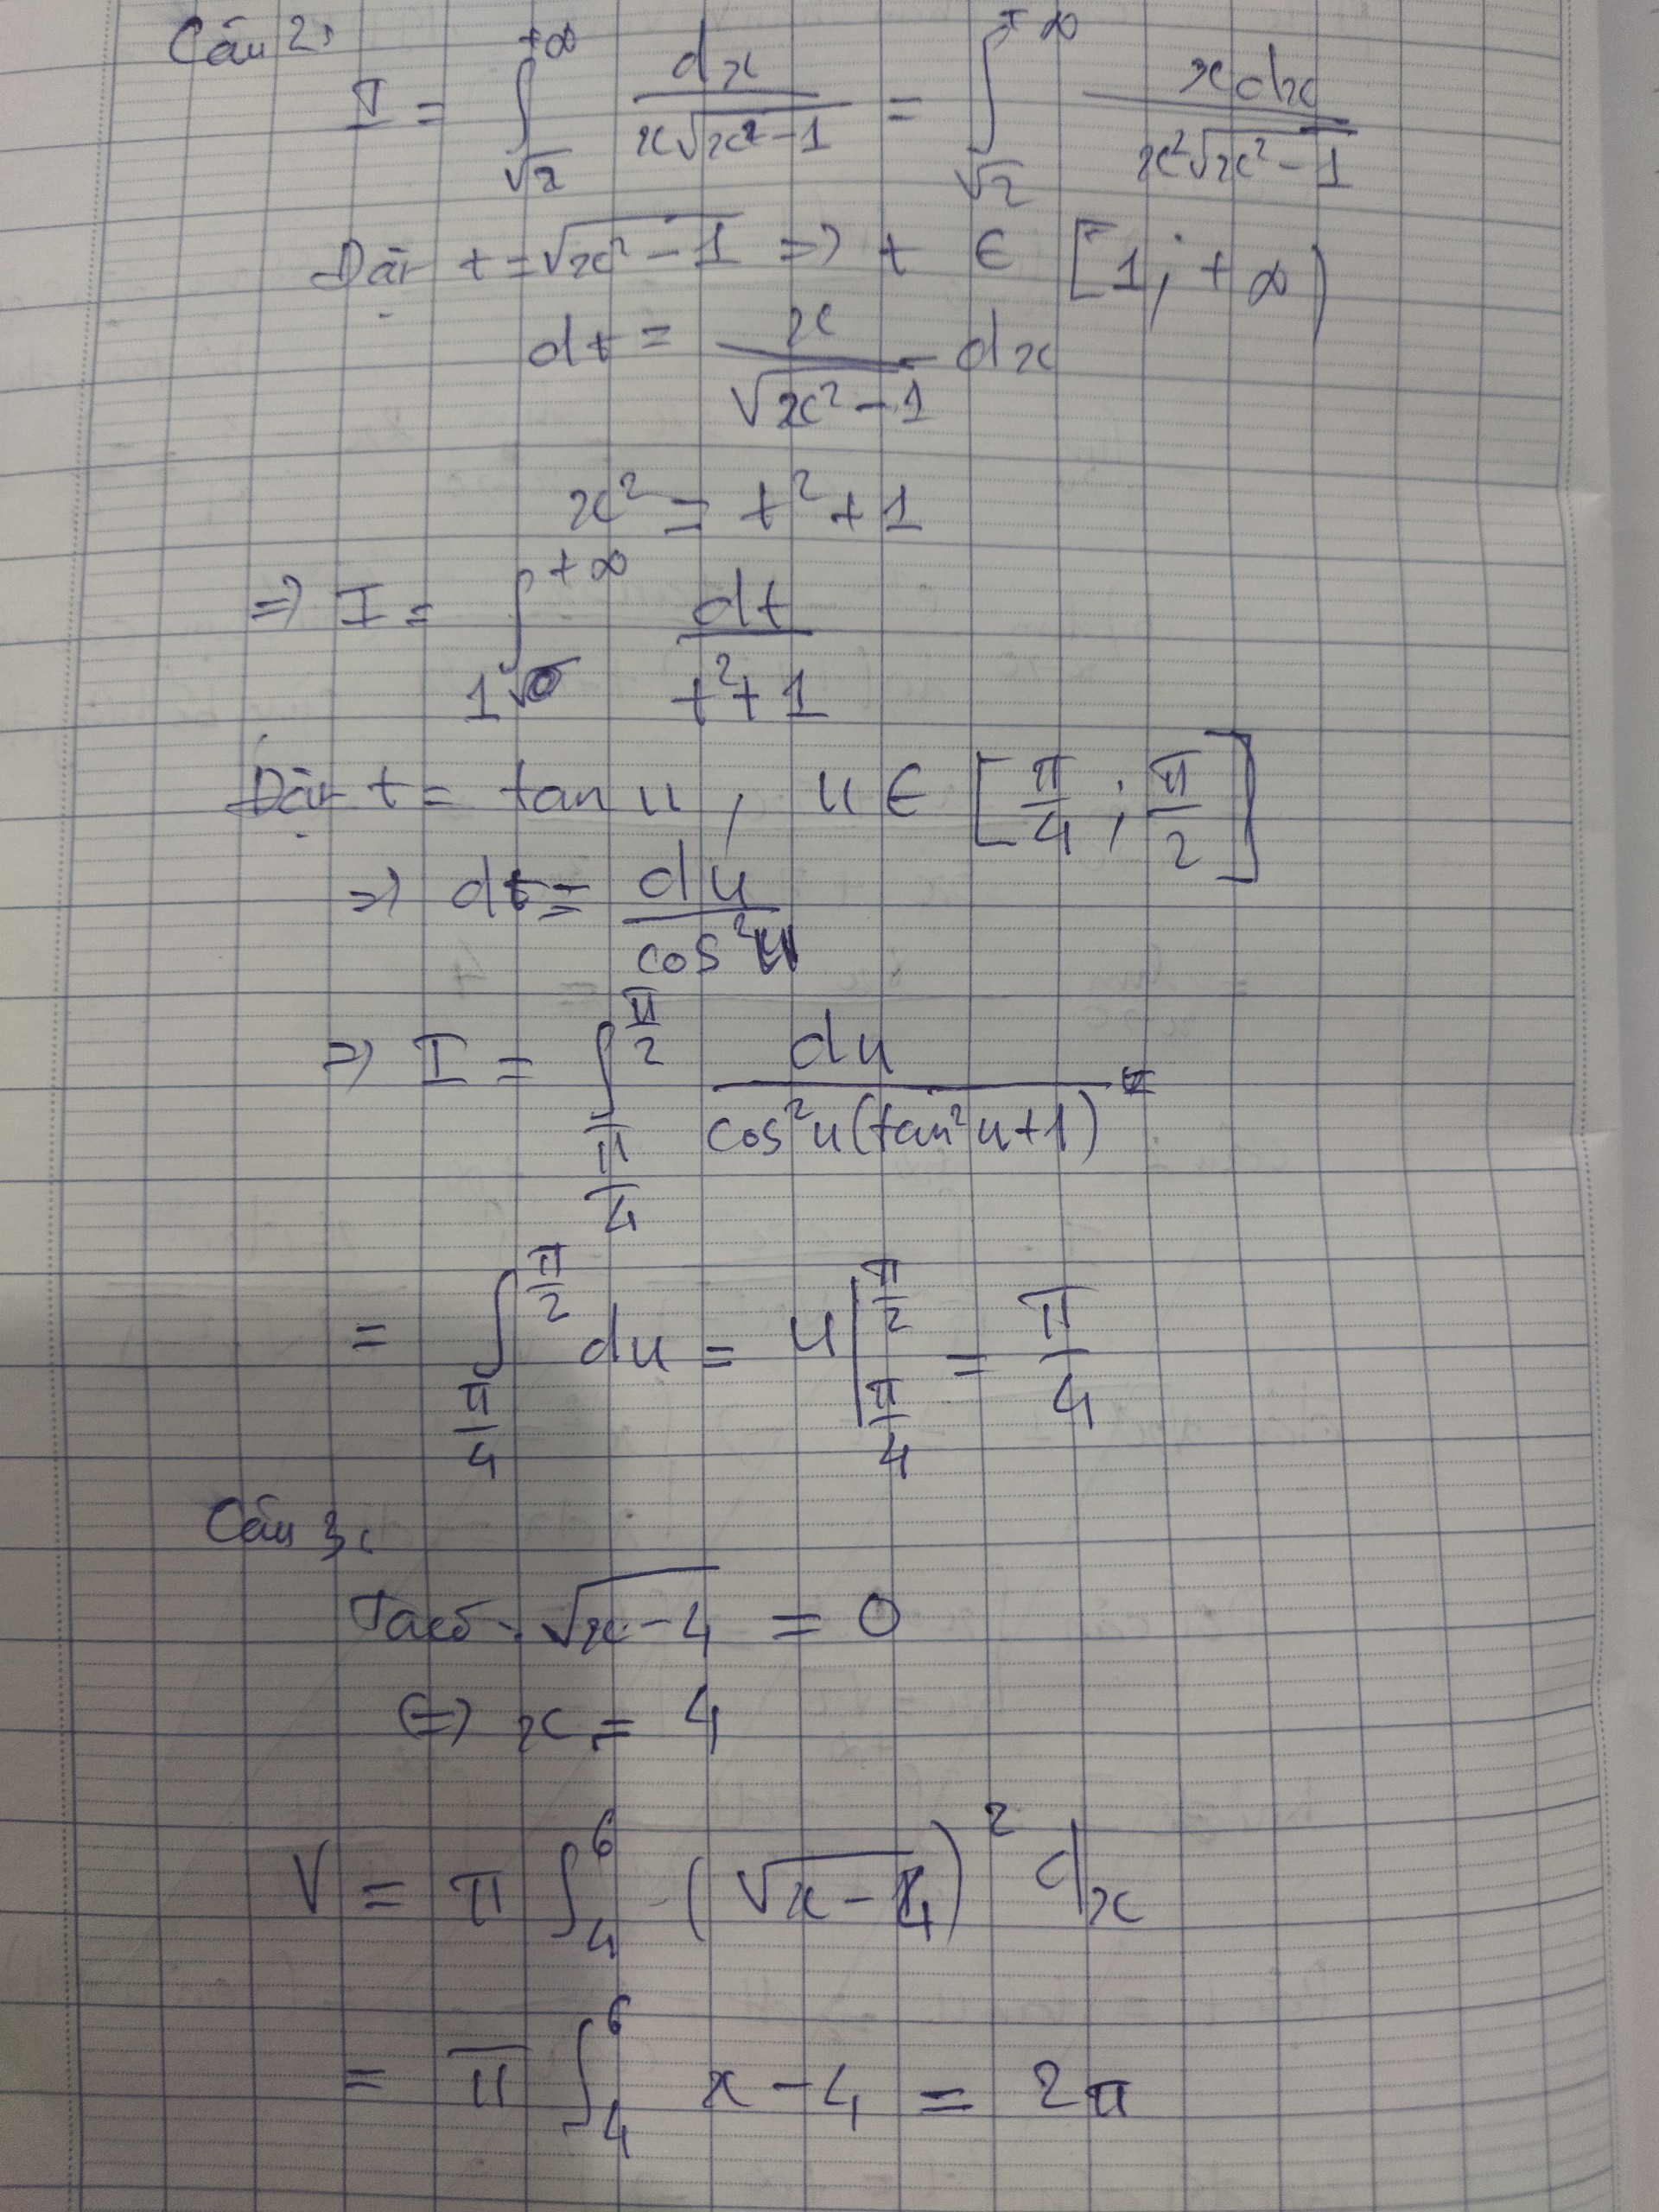 Câu 2:
I = ∫_{√2}^{+∞} dx / (x√(x²-1)) = ∫_{√2}^{+∞} xdx / (x²√(x²-1))
Đặt t = √(x²-1) => t ∈ [1; +∞)
dt = x/√(x²-1) dx
x² = t² + 1
=> I = ∫_{1}^{+∞} dt / (t²+1)
Đặt t = tan u, u ∈ [π/4; π/2]
=> dt = du / cos²u
=> I = ∫_{π/4}^{π/2} du / (cos²u(tan²u+1))
= ∫_{π/4}^{π/2} du = u |_{π/4}^{π/2} = π/4
Câu 3:
Ta có √(x-4) = 0
(=) x = 4
V = π ∫_4^6 (√(x-4))² dx
= π ∫_4^6 x-4 = 2π